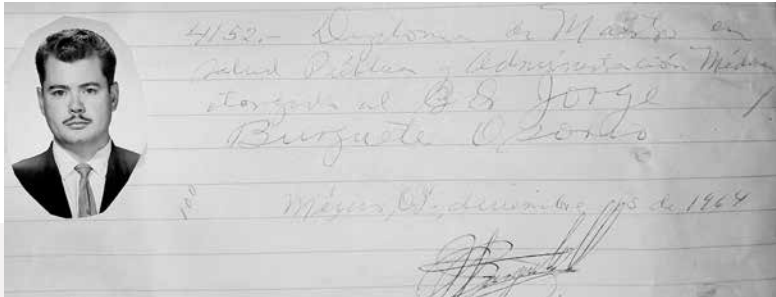 4152.- Diploma de Maestro en
Salud Pública y Administración Médica
otorgado al C. Dr. Jorge
Burguete Osorio
México, D.F., diciembre de 1964